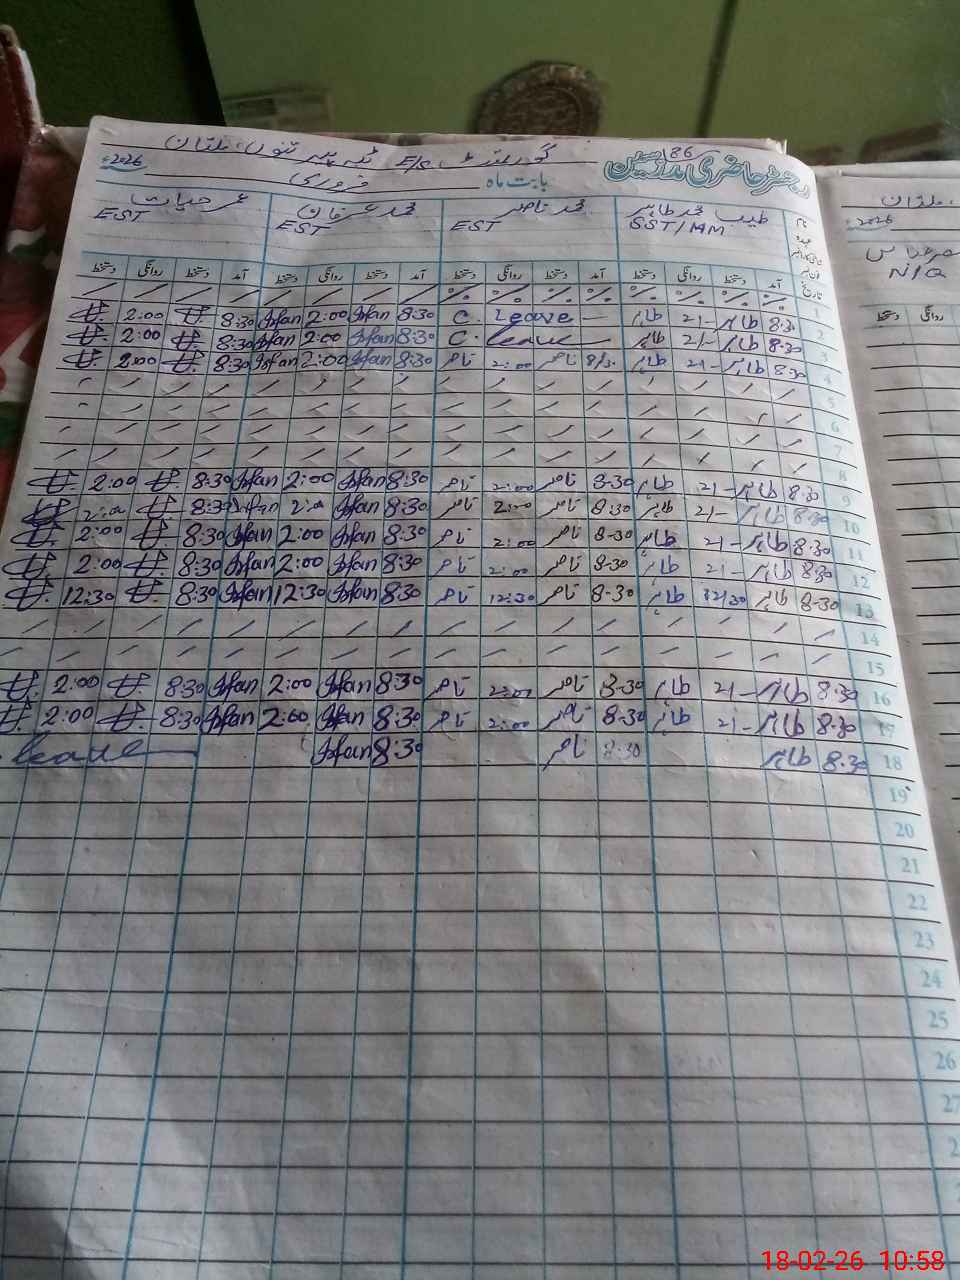 86
رجسٹر حاضری مدرسین گورنمنٹ E/S ٹبہ پیر تنوں، ملتان
بابت ماہ فروری 2026ء
نام طیب محمد طاہر محمد ناصر محمد عرفان عمر حیات
عہدہ SST/MM EST EST EST
تاریخ آمد دستخط روانگی دستخط آمد دستخط روانگی دستخط آمد دستخط روانگی دستخط آمد دستخط روانگی دستخط
1
2 8:30 طاہر 2/- طاہر C. Leave 8:30 Irfan 2:00 Irfan 8:30 2:00
3 8:30 طاہر 2/- طاہر C. Leave 8:30 Irfan 2:00 Irfan 8:30 2:00
4 8:30 طاہر 2/- طاہر ناصر 2:00 ناصر 8:30 Irfan 2:00 Irfan 8:30 2:00
5
6
7
8
9 8:30 طاہر 2/- طاہر 8-30 ناصر 2:00 ناصر 8:30 Irfan 2:00 Irfan 8:30 2:00
10 8:30 طاہر 2/- طاہر 8:30 ناصر 2:00 ناصر 8:30 Irfan 2:00 Irfan 8:30 2:00
11 8:30 طاہر 2/- طاہر 8-30 ناصر 2:00 ناصر 8:30 Irfan 2:00 Irfan 8:30 2:00
12 8:30 طاہر 2/- طاہر 8-30 ناصر 2:00 ناصر 8:30 Irfan 2:00 Irfan 8:30 2:00
13 8-30 طاہر 12/30 طاہر 8-30 ناصر 12:30 ناصر 8:30 Irfan 12:30 Irfan 8:30 12:30
14
15
16 8:30 طاہر 2/- طاہر 8-30 ناصر 2:00 ناصر 8:30 Irfan 2:00 Irfan 8:30 2:00
17 8:30 طاہر 2/- طاہر 8-30 ناصر 2:00 ناصر 8:30 Irfan 2:00 Irfan 8:30 2:00
18 8:30 طاہر 8:30 ناصر 8:30 Irfan Leave
19
20
21
22
23
24
25
26
27
2
ملتان
2026ء
N/Q
روانگی دستخط
18-02-26 10:58